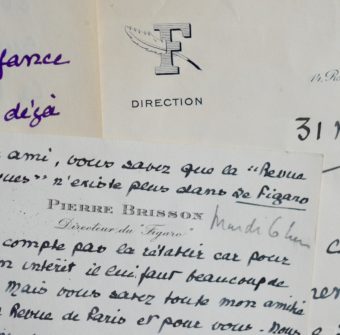 fance
déjà
F
DIRECTION
14, R
31 M
ami, vous savez que la "Revue
ques" n'existe plus dans Le Figaro
PIERRE BRISSON
Directeur du "Figaro"
Mardi 6h
compte pas la rétablir car pour
intérêt il lui faut beaucoup de
Mais vous savez toute mon amitié
Revue de Paris et pour vous. Nous